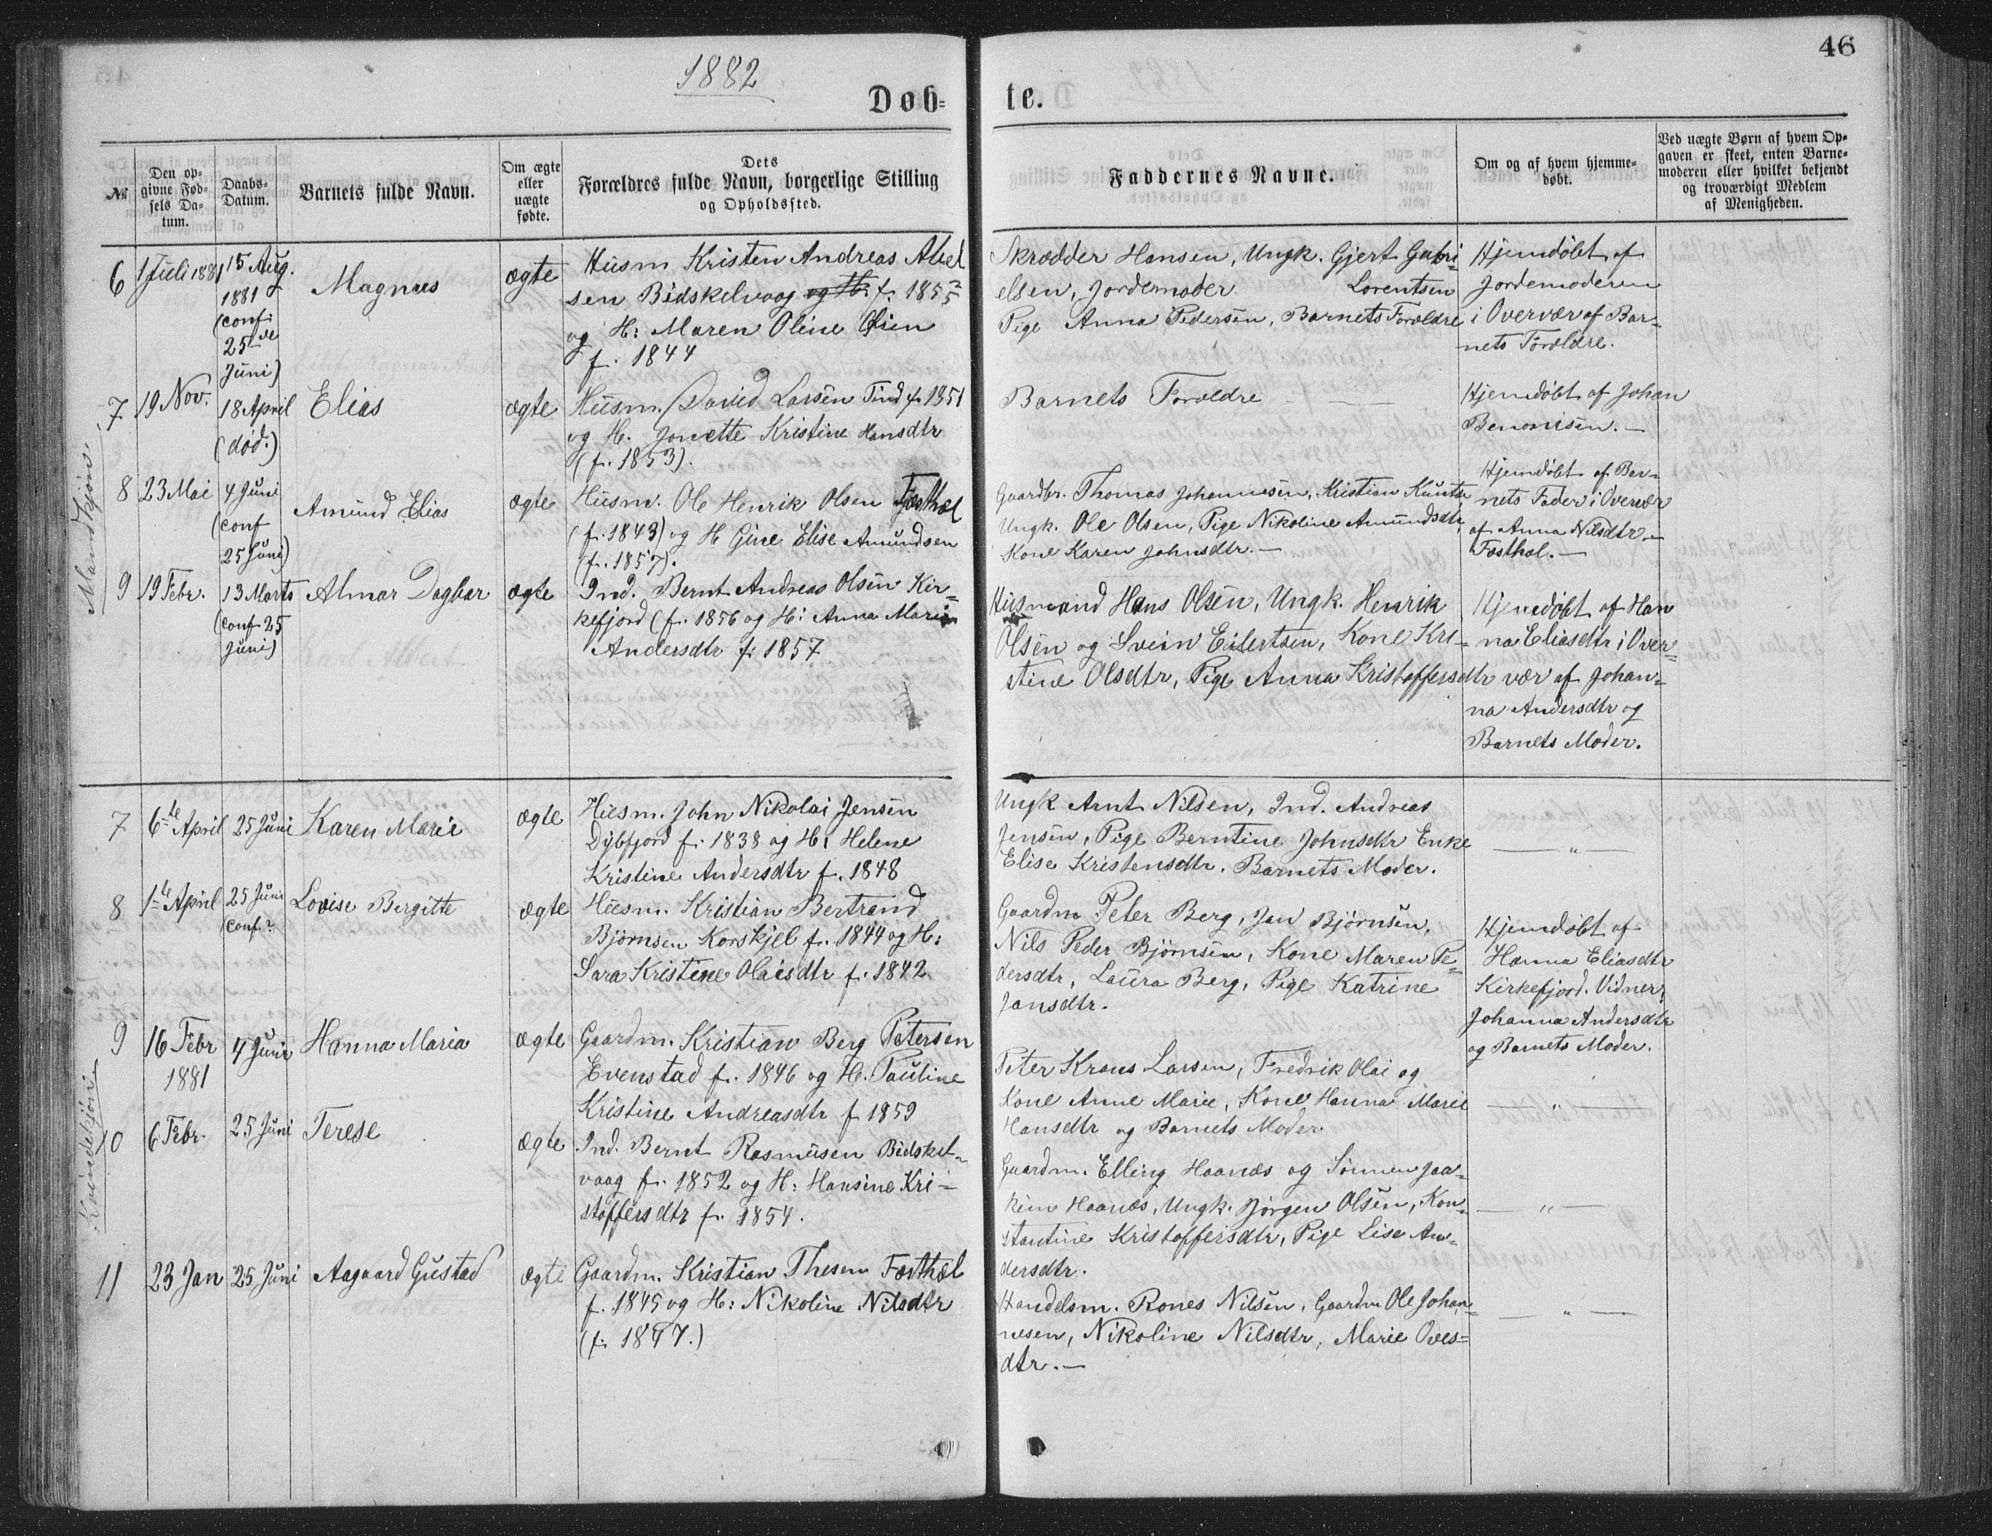 1882
46
Døb=
te.
№
Den op-
givne Fød-
sels Da-
tum.
Daabs-
Datum.
Barnets fulde Navn.
Om ægte
eller
uægte
fødte.
Dets
Forældres fulde Navn, borgerlige Stilling
og Opholdssted.
Faddernes Navne.
Om og af hvem hjemme-
døbt.
Ved uægte Børn af hvem Op-
gaven er skeet, enten Barne-
moderen eller hvilket bekjendt
og troværdigt Medlem
af Menigheden.
Mandkjøn
6
1 Juli 1881
15 Aug.
1881
(conf.
25de
Juni)
Magnus
ægte
Husm. Kristen Andreas Abel
sen Bidskelvaag og H: f. 1855
og H: Maren Oline Olsen
f. 1844
Skrædder Hansen, Ungk. Gjert Gabri-
elsen, Jordemoder Lorentsen
Pige Anna Pedersen, Barnets Forældre
Hjemdøbt af
Jordemoderen
i Overvær af Bar-
nets Forældre.
7
19 Nov.
18 April
(død.)
Elias
ægte
Husm. David Larsen Tind f. 1851
og H. Jonette Kristine Hansdtr
(f. 1853).
Barnets Forældre
Hjemdøbt af Johan
Benonisen.—
8
23 Mai
4 Juni
(conf
25 Juni)
Amund Elias
ægte
Husm. Ole Henrik Olsen Fæsthæl
(f. 1843) og H Gine Elise Amundsen
(f. 1857).
Gaardbr. Thomas Johannesen, Kristian
Ungk. Ole Olsen, Pige Nikoline Amundsdtr,
Kone Karen Johnsdtr.—
Hjemdøbt af Bar-
nets Fader i Overvær
af Anna Nilsdtr
Fæsthæl.—
9
19 Febr.
13 Marts
(conf. 25
Juni)
Almar Dagbar
ægte
Ind. Bernt Andreas Olsen Kir-
kefjord (f. 1856 og H: Anna Marie
Andersdtr f. 1857
Husmand Hans Olsen, Ungk. Henrik
Olsen og Svein Eilertsen, Kone Kri-
stine Olsdtr, Pige Anna Kristoffersdtr
Hjemdøbt af Han
na Eliasdtr i Over-
vær af Johan-
na Andersdtr og
Barnets Moder.
Kvindekjøn
7
6te April
25 Juni
Karen Marie
ægte
Husm. John Nikolai Jensen
Dybfjord f. 1838 og H: Helene
Kristine Andersdtr f. 1848
Ungk Arnt Nilsen, Ind. Andreas
Jensen, Pige Berntine Johnsdtr Enke
Elise Kristensdtr. Barnets Moder.
— „ —
8
1te April
25 Juni
conf.?
Lovise Bergitte
ægte
Husm. Kristian Bertrand
Bjørnsen Korskjel f. 1844 og H:
Sara Kristine Olaisdtr f. 1842
Gaardm Peter Berg, Jan Bjørnsen,
Nils Peder Bjørnsen, Kone Maren Pe-
dersdtr, Laura Berg, Pige Katrine
Jansdtr.
Hjemdøbt af
Hanna Eliasdtr
Kirkefjord. Vidner,
Johanna Andersdtr
og Barnets Moder.
9
16 Febr
1881
4 Juni
Hanna Maria
ægte
Gaardm. Kristian Berg Petersen
Evenstad f. 1846 og H. Pauline
Kristine Andreasdtr f 1859
Peter Krans Larsen, Fredrik Olai og
Kone Anne Marie, Kone Hanna Marie
Hansdtr og Barnets Moder
— „ —
10
6 Febr.
25 Juni
Terese
ægte
Ind. Bernt Rasmusen Bidskel-
vaag f. 1852 og H: Hansine Kri-
stoffersdtr f. 1854.
Gaardm. Elling Haanæs og Sønnen Joa-
kim Haanæs, Ungk. Jørgen Olsen, Kon-
stantine Kristoffersdtr, Pige Lise An-
dersdtr.
— „ —
11
23 Jan
25 Juni
Aagaard Gustad
ægte
Gaardm. Kristian Thesen Fæsthæl
f. 1845 og H: Nikoline Nilsdtr
(f. 1847.)
Handelsm. Rones Nilsen, Gaardm Ole Johan-
nesen, Nikoline Nilsdtr, Marie Oves-
dtr.—
— „ —